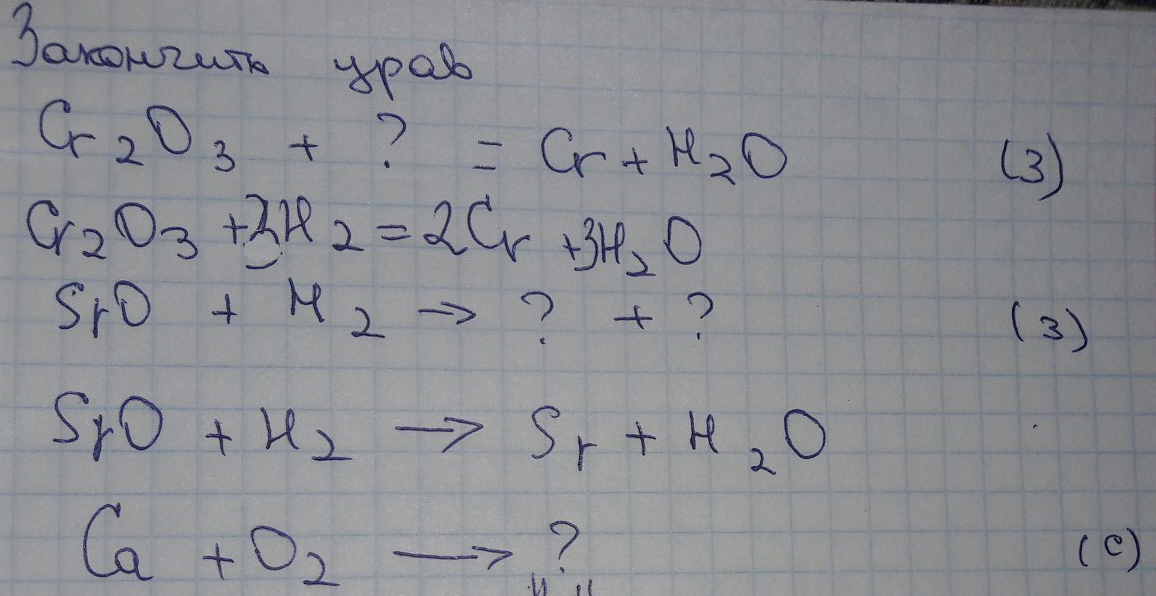 Закончить урав
Cr2O3 + ? = Cr + H2O (3)
Cr2O3 + 3H2 = 2Cr + 3H2O
SrO + H2 → ? + ? (3)
SrO + H2 → Sr + H2O
Ca + O2 → ? (c)